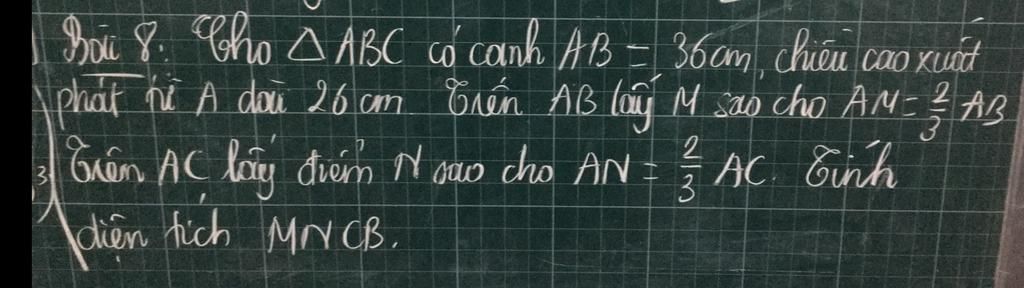 Bài 8. Cho △ ABC có cạnh AB = 36cm, chiều cao xuất
phát từ A dài 26 cm. Trên AB lấy M sao cho AM = 2/3 AB
Trên AC lấy điểm N sao cho AN = 2/3 AC. Tính
diện tích MNCB.